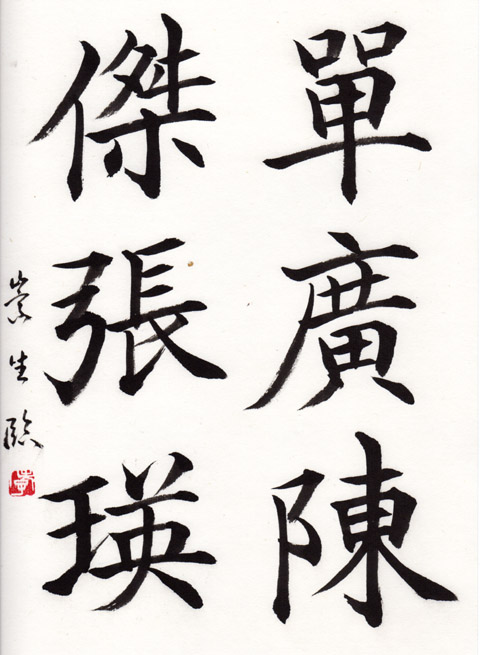 單廣陳
傑張瑛
崇生臨